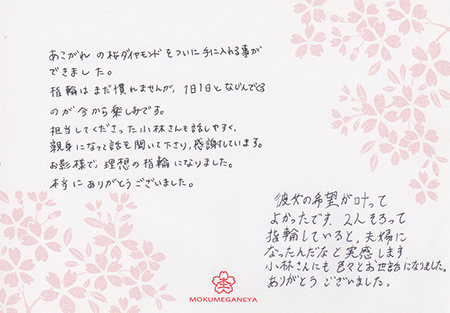 あこがれ の桜ダイヤモンドをついに手に入れる事が
できました。
指輪はまだ慣れませんが、1日1日となじんでくる
のが今から楽しみです。
担当してくださった小林さんも話しやすく、
親身になって話も聞いて下さり、感謝しています。
お影様で、理想の指輪になりました。
本当に ありがとうございました。
彼女の希望が叶って
よかったです。2人そろって
指輪していると、夫婦に
なったんだなと実感します
小林さんにも色々とお世話になりました。
ありがとう ございました。
MOKUMEGANEYA